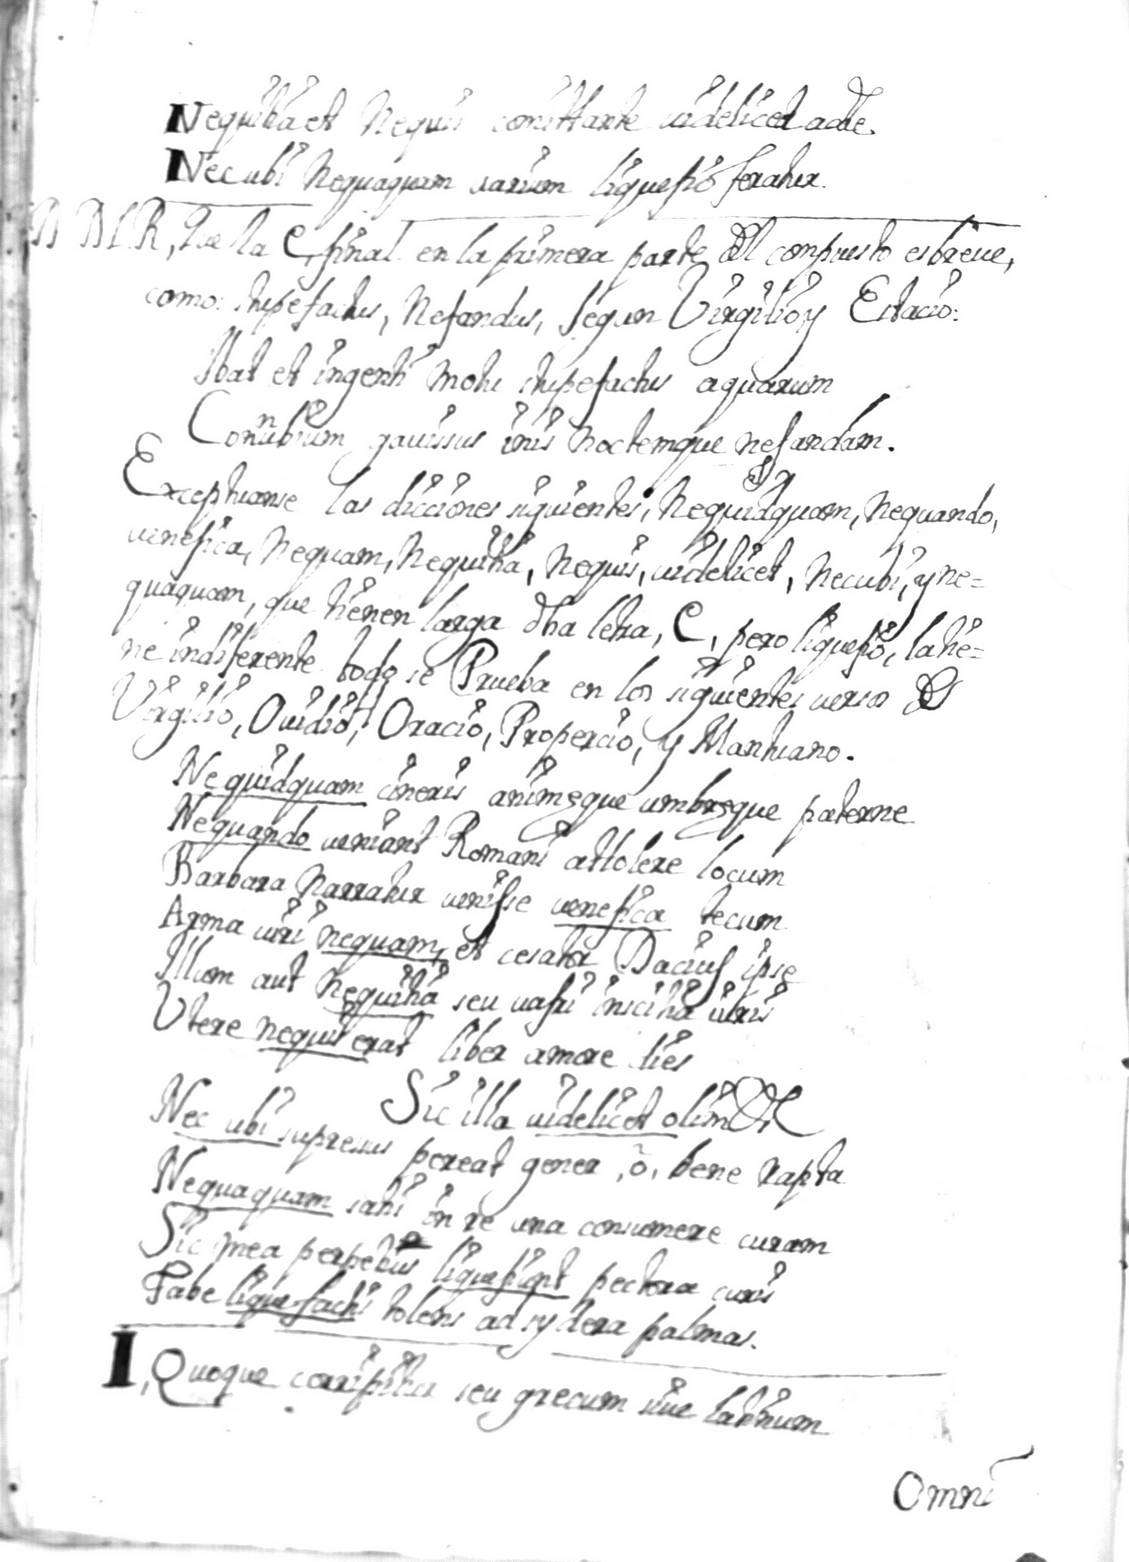 Nequitia et Nequis comittante uidelicet adde.
Nec ubi Nequaquam varium liquefio feratur.
R, la E, final en la primera parte del conpuesto es breue,
como: stupefactus, Nefandus, segun Virgilio y Estacio:
Ibat et ingenti motu stupefactus aquarum
Connubium gauissus inis Noctemque nefandam.
Exceptuanse las dicciones siguientes, Nequidquam, Nequando,
venefica, Nequam, Nequitia, Nequis, uidelicet, Necubi, y ne=
quaquam, que tienen larga dha letra, E, pero liquefio, la tie=
ne indiferente todo se Prueba en los siguientes versos de
Virgilio, Ouidio, Oracio, Propercio, y Mantuano.
Nequidquam cineris animęque umbręque paterne
Nequando veniant Romani attolere locum
Barbara Narratur venisse venefica tecum
Arma uiri nequam, et cesator Dacius ipse
Illum aut Nequitia seu vafri inscitia iuris
Vtere nequis erat liber amore dies
Sic illa uidelicet olim &c
Nec ubi supresus pereat gener, ò, bene rapta
Nequaquam sati in re una consumere curam
Sic mea perpetuis liquefiunt pectora curis
Tabe liquefactis tolens ad sydera palmas.
I, Quoque corripitur seu grecum siue latinum
Omni